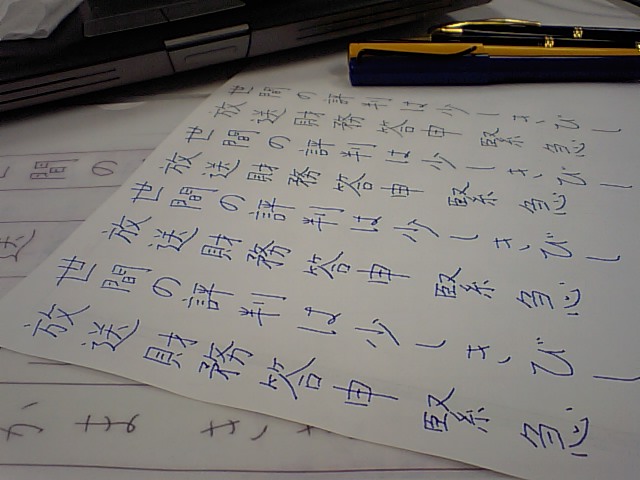 世間の評判は少しきびし
放送財務答申 緊急
世間の評判は少しきびし
放送財務答申 緊急
世間の評判は少しきびし
放送財務答申 緊急
世間の評判は少しきびし
放送財務答申 緊急
間の
送